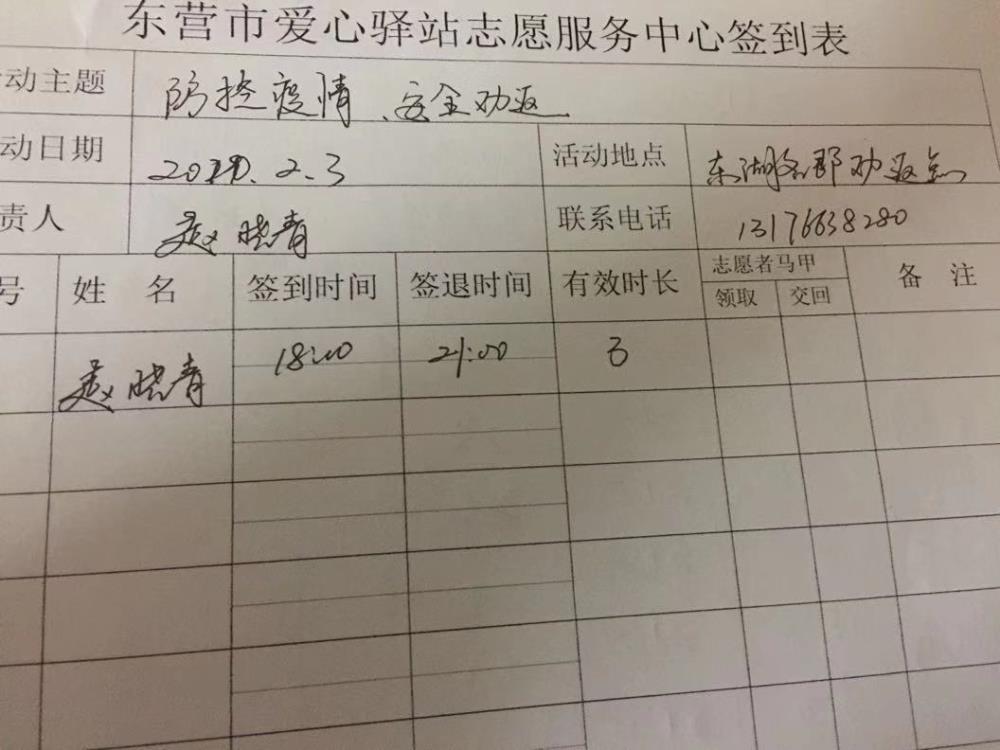 东营市爱心驿站志愿服务中心签到表
动主题 防控疫情、安全劝返
动日期 2020.2.3 活动地点 东湖 郡劝返点
责人 赵晓青 联系电话 13176638280
号 姓 名 签到时间 签退时间 有效时长 志愿者马甲 备 注
领取 交回
赵晓青 18:00 21:00 3